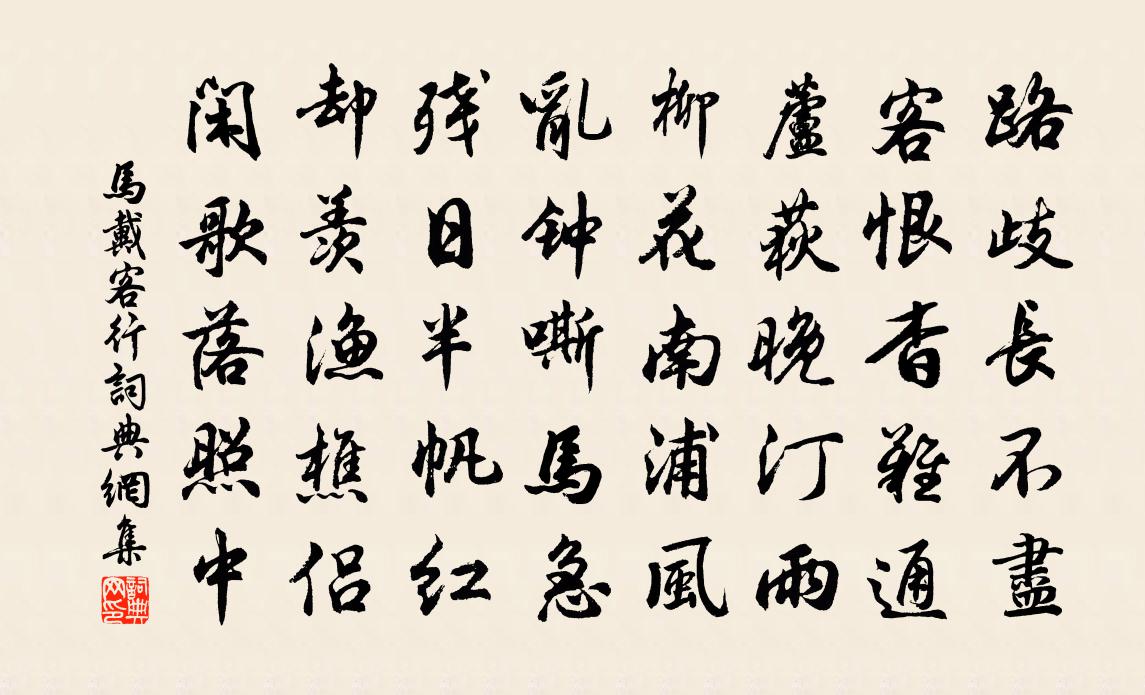 路歧長不盡
客恨杳難通
蘆荻晚汀雨
柳花南浦風
亂钟嘶馬急
残日半帆红
却羨漁樵侶
闲歌落照中
馬戴客行詞典網集
詞典網印